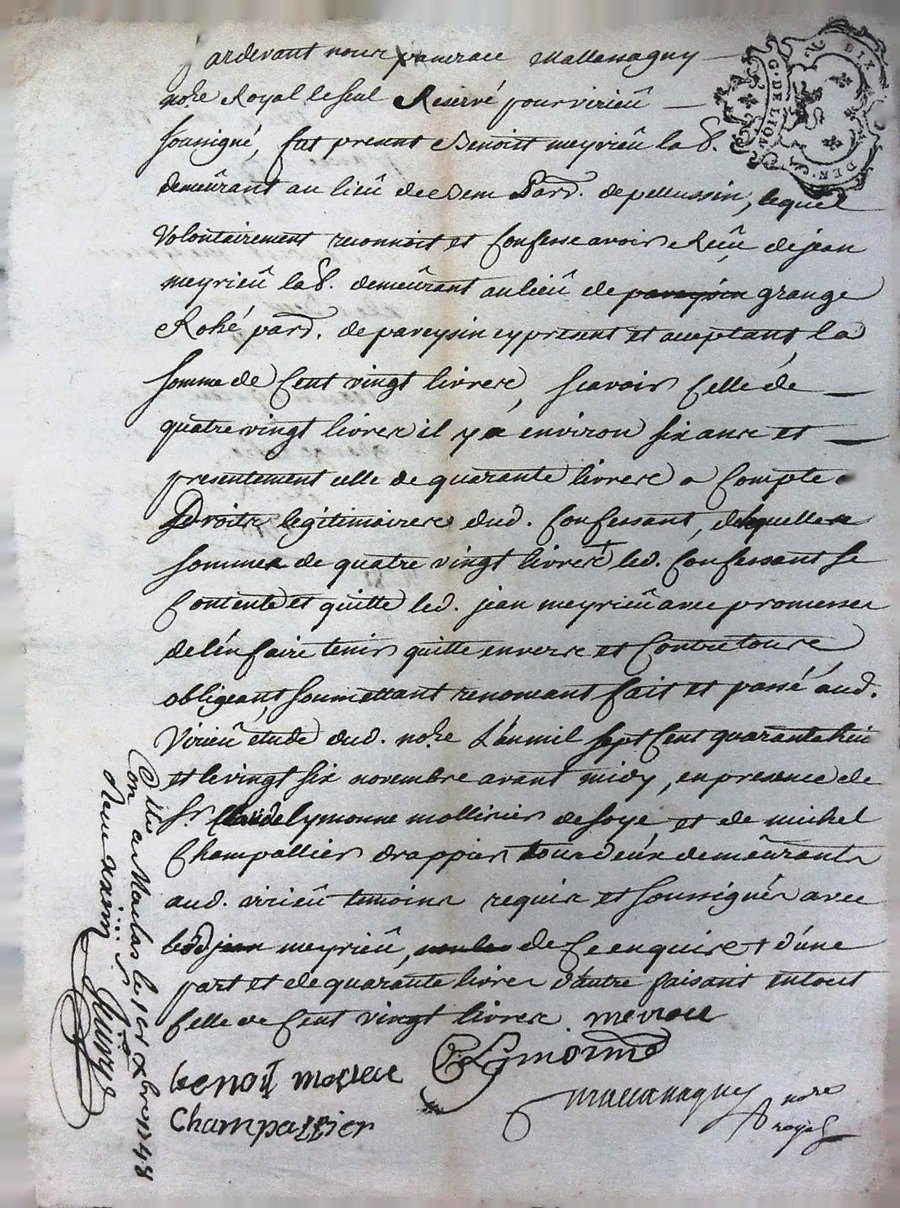 Pardevant nous pancrace Mallanaguy
nore Royal le seul Reservé pour virieû
soussigné, fut present Benoist meyrieû lab.
demeûrant au lieû de Dem Par. de pellussin, lequel
Volontairement reconnoit et Confesse avoir Reçeû de jean
meyrieû lab. demeûrant au lieû de paveysin grange
Rohé par. de paveysin cy present et aceptant la
somme de Cent vingt livres, scavoir Celle de
quatre vingt livres il y a environ six ans et
presentement celle de quarante livres a Compte
Droits legitimaires dud. Confessant, desquelles
sommes de quatre vingt livres + led. Confessant se
Contente et quitte led. jean meyrieû avec promesses
de l'en faire tenir quitte envers et Contre tous
obligeant soumettant renonceant fait et passé aud.
Virieû étude dud. nore L'an mil sept Cent quarante huit
et le vingt six novembre avant midy, en presence de
Sr Claude Lymonne mollinier de soye et de michel
Champallier drappier tous deux demeûrants
aud. virieû temoins requis et soussignés avec
led meyrieû, de Ce enquis + d'une
part et de quarante livres d'autre faisant en tout
Celle de Cent vingt livres meyrieu
benoit meyrieu Lymonne
Champallier Mallanaguy nore royal
Con.lé a Maclas le 1er xbre 1748
Reçu
G. DE LION
DIX
DEN.